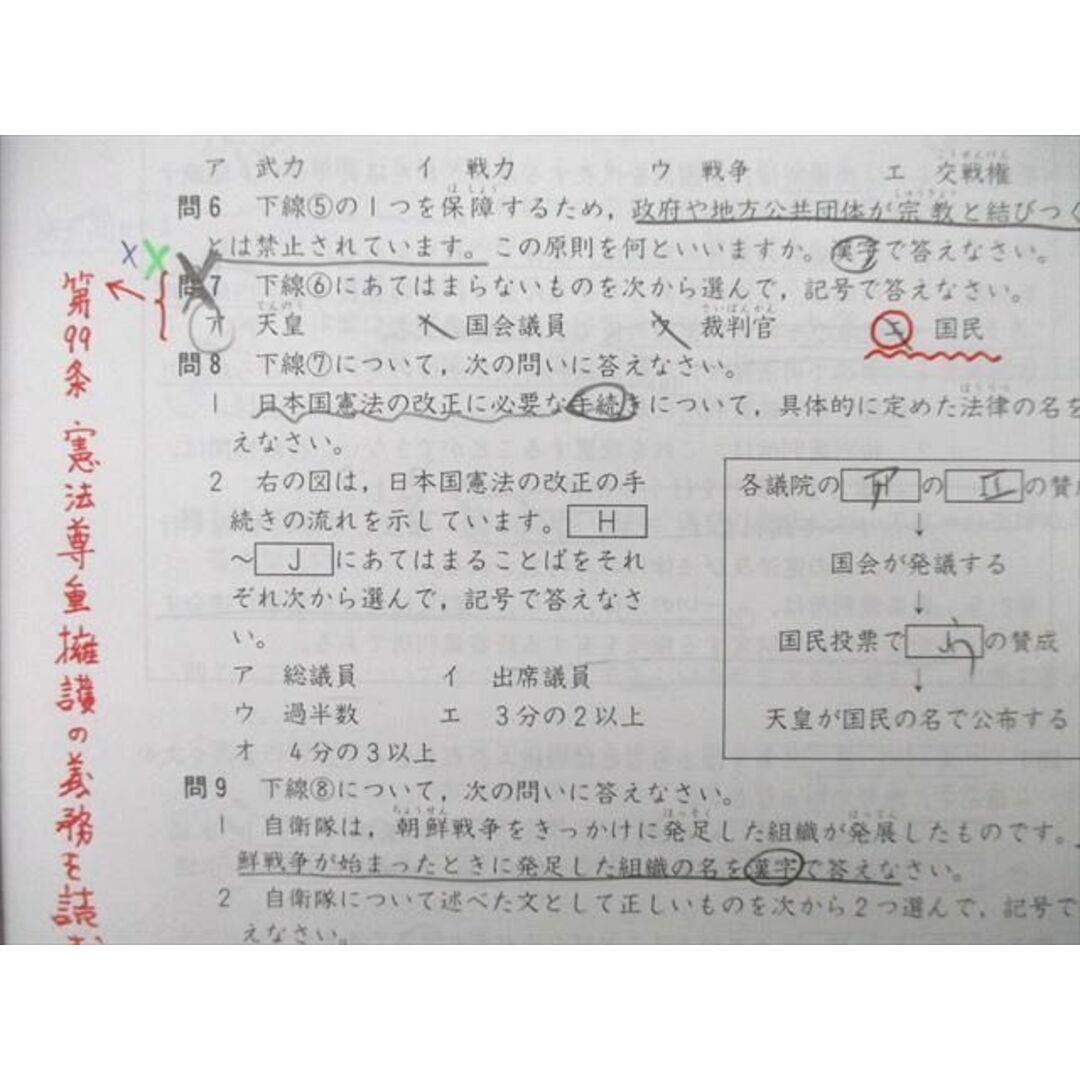 ア 武力 イ 戦力 ウ 戦争 エ 交戦権
問6 下線⑤の1つを保障するため，政府や地方公共団体が宗教と結びつく
とは禁止されています。この原則を何といいますか。漢字で答えなさい。
問7 下線⑥にあてはまらないものを次から選んで，記号で答えなさい。
ア 天皇 イ 国会議員 ウ 裁判官 エ 国民
問8 下線⑦について，次の問いに答えなさい。
1 日本国憲法の改正に必要な手続きについて，具体的に定めた法律の名を
えなさい。
2 右の図は，日本国憲法の改正の手
続きの流れを示しています。 H
～ J にあてはまることばをそれ
ぞれ次から選んで，記号で答えなさ
い。
ア 総議員 イ 出席議員
ウ 過半数 エ 3分の2以上
オ 4分の3以上
各議院の H の I の賛成
↓
国会が発議する
↓
国民投票で J の賛成
↓
天皇が国民の名で公布する
問9 下線⑧について，次の問いに答えなさい。
1 自衛隊は，朝鮮戦争をきっかけに発足した組織が発展したものです。
鮮戦争が始まったときに発足した組織の名を漢字で答えなさい。
2 自衛隊について述べた文として正しいものを次から2つ選んで，記号で
えなさい。
第99条 憲法尊重擁護の義務を読む